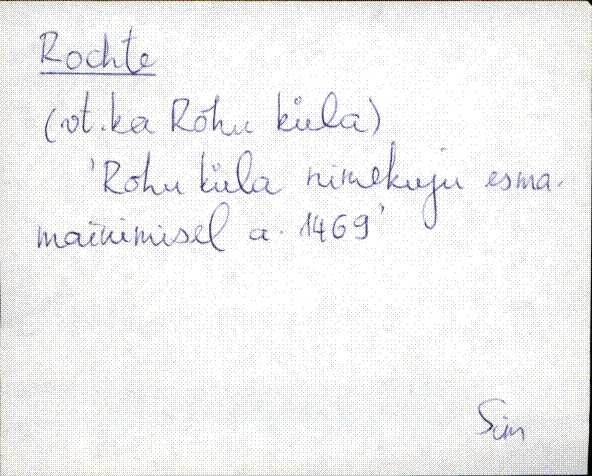 Rochte
(vt. ka Rohu küla)
'Rohu küla nimekuju esma-
mainimisel a. 1469'
Sim